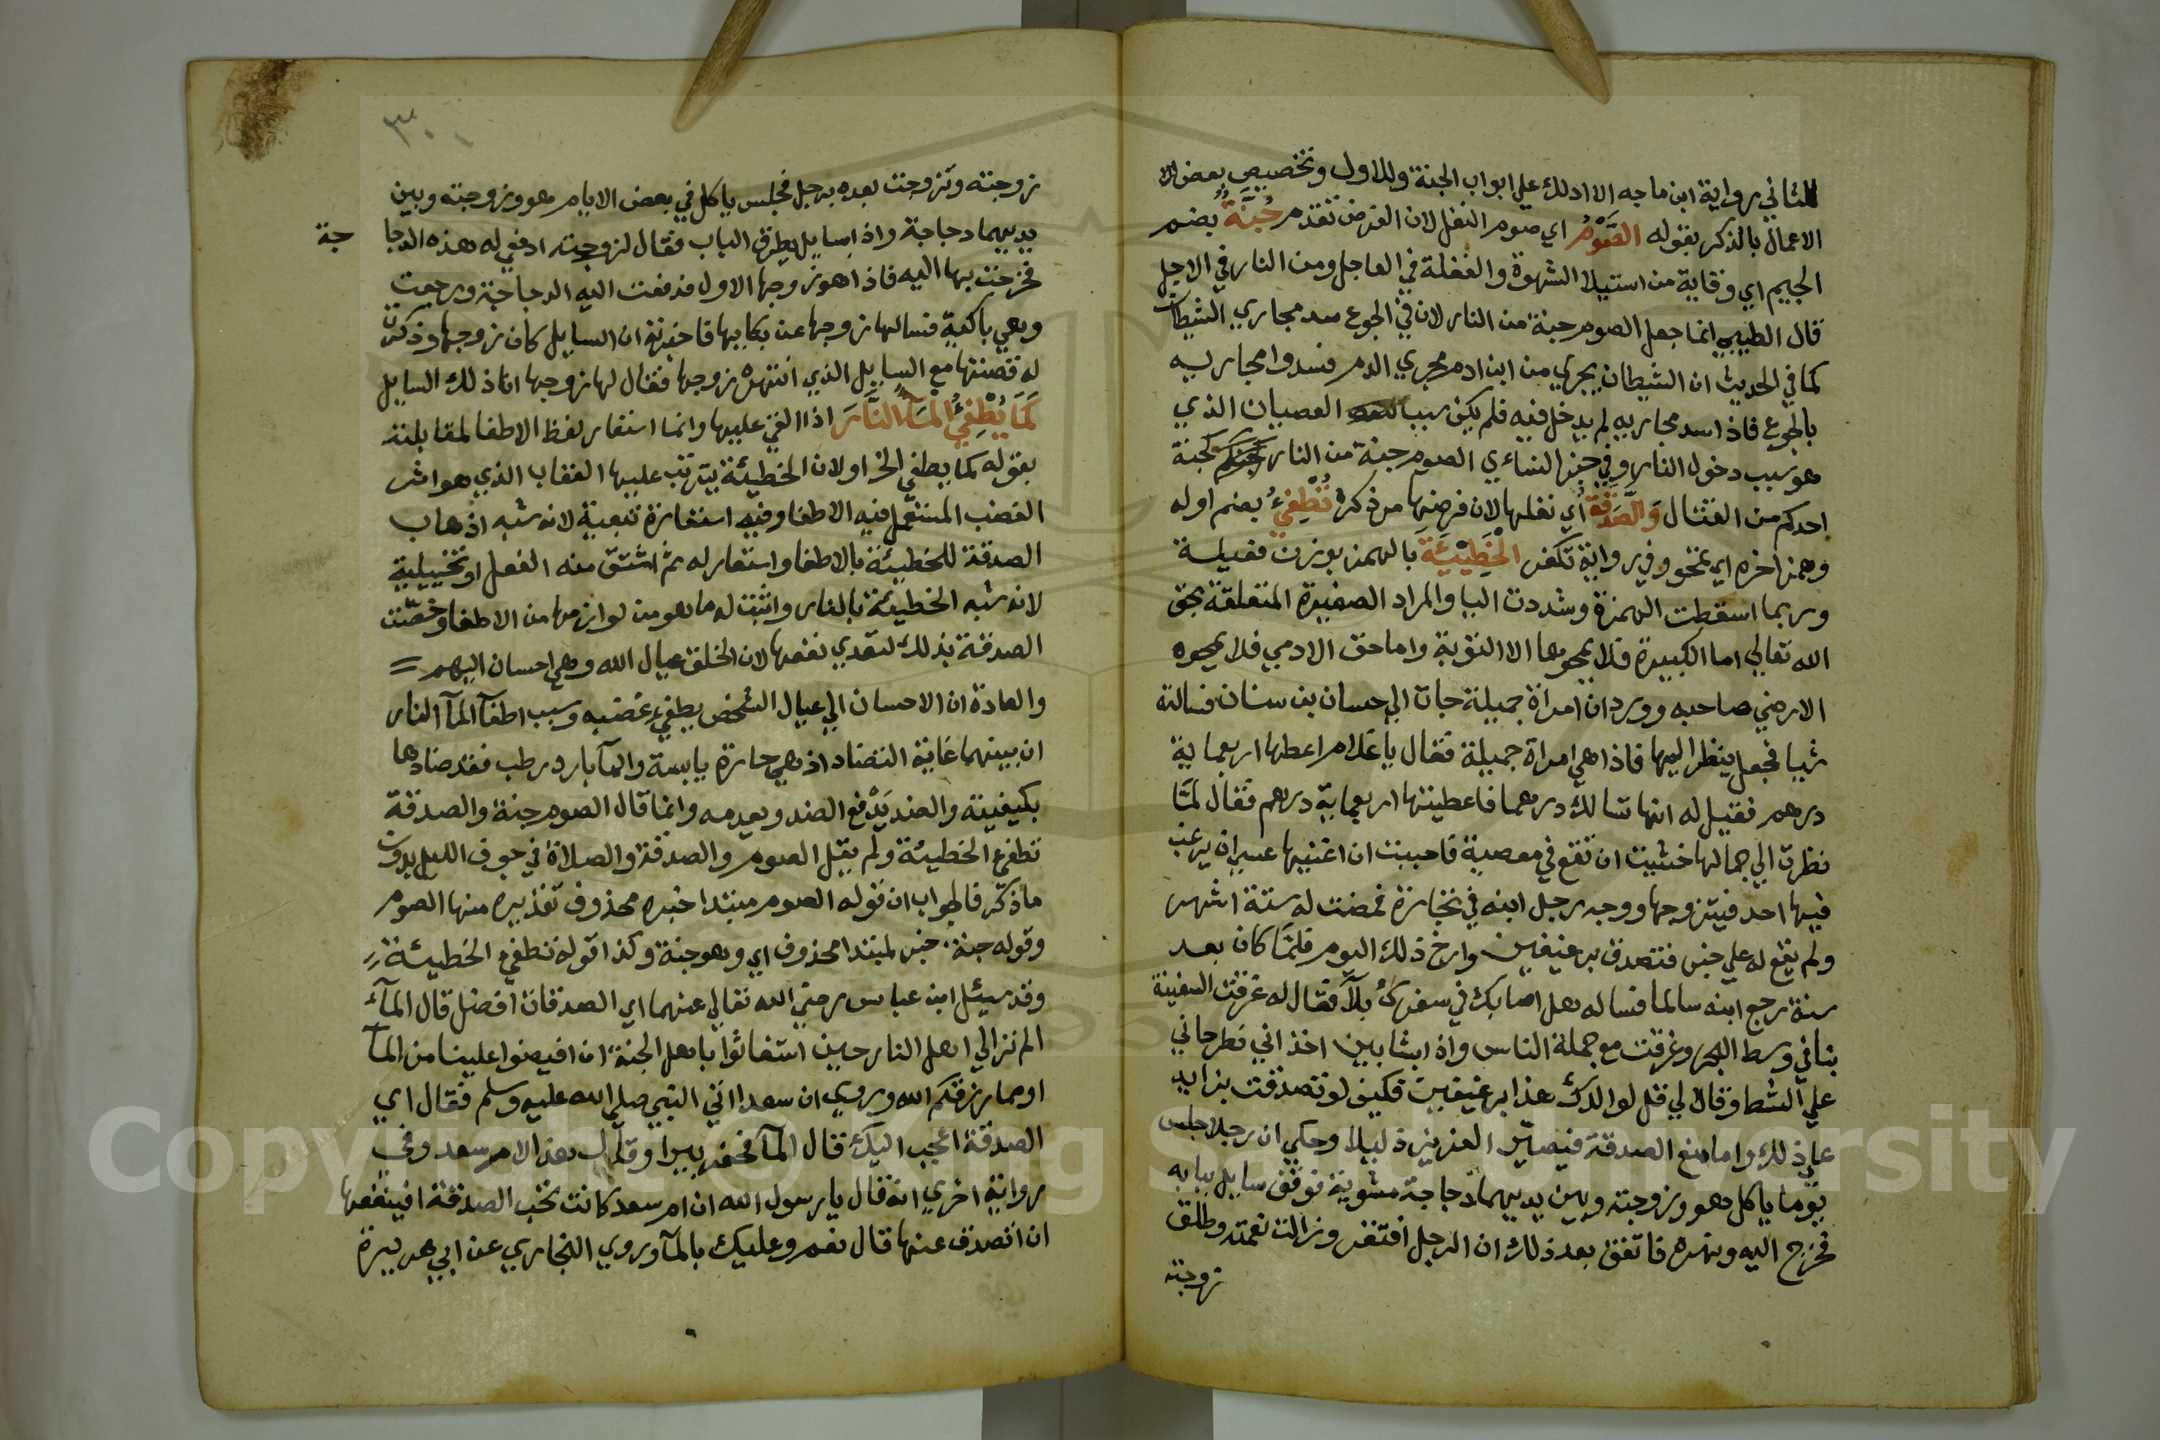 للثاني رواية ابن ماجه الا ادلك علي ابواب الجنة وللاول وتخصيص بعض
الاعمال بالذكر بقوله الصَّوْمُ اي صوم النفل لان الفرض تقدم جُنَّةٌ بضم
الجيم اي وقاية من استيلا الشهوة والغفلة في العاجل ومن النار في الاجل
قال الطيبي انما جعل الصوم جنة من النار لان في الجوع سد مجاري الشيطان
كما في الحديث ان الشيطان يجري من ابن ادم مجري الدم فسدوا مجاريه
بالجوع فاذا سد مجاريه لم يدخل فيه فلم يكن سبب العصيان الذي
هو سبب دخول النار وفي خبر النساءي الصوم جنة من النار كجنة
احدكم من القتال وَالصَّدَقَةُ أي نفلها لان فرضها مر ذكره تُطْفِيءُ بضم اوله
وهمز اخره اي تمحو وفي رواية تكفر الْخَطِيْئَةَ بالهمز بوزن فعيلة
وربما اسقطت الهمزة وشددت اليا والمراد الصغيرة المتعلقة بحق
الله تعالي اما الكبيرة فلا يمحوها الا التوبة واما حق الادمي فلا يمحوه
الا رضي صاحبه وورد ان امراة جميلة جات الي حسان بن سنان فسالته
شيا فجعل ينظر اليها فاذا هي امراة جميلة فقال يا غلام اعطها اربعماية
درهم فقيل له انها تسالك درهما فاعطيتها اربعماية درهم فقال لمّا
نظرت الي جمالها خشيت ان تقع في معصية فاحببت ان اغنيها عسي ان يرغب
فيها احد فيتزوجها ووجه رجل ابنه في تجارة فمضت له ستة اشهر
ولم يقع له علي خبر فتصدق برغيفين وارخ ذلك اليوم فلمّا كان بعد
سنة رجع ابنه سالما فساله هل اصابك في سفرك بلآ فقال له غرقت السفينة
بنا في وسط البحر وغرقت مع جملة الناس واذا بشابين اخذاني فطرحاني
علي الشط وقالا لي قل لوالدك هذا برغيفين فكيف لو تصدقت بزايد
علي ذلك واما منع الصدقة فيصيّر العزيز ذليلا وحكي ان رجلا جلس
يوما ياكل هو وزوجته وبين يديهما دجاجة مشوية فوقف سايل ببابه
فخرج اليه ونهره فاتفق بعد ذلك ان الرجل افتقر وزالت نعمته وطلق
زوجته
٣٠
زوجته وتزوجت بعده برجل فجلس ياكل في بعض الايام هو وزوجته وبين
يديهما دجاجة واذا سايل يطرق الباب فقال لزوجته ادفعي له هذه الدجا
جة
فخرجت بها اليه فاذا هو زوجها الاول فدفعت اليه الدجاجة ورجعت
وهي باكية فسالها زوجها عن بكايها فاخبرته ان السايل كان زوجها وذكرت
له قصتها مع السايل الذي انتهره زوجها فقال لها زوجها انا ذلك السايل
كَمَا يُطْفِيُ الْمَآءُ النَّارَ اذا القي عليها وانما استعار لفظ الاطفا لمقابلته
بقوله كما يطفي الخ او لان الخطيئة يترتب عليها العقاب الذي هو اثر
الغضب المستعمل فيه الاطفا وفيه استعارة تبعية لانه شبه اذهاب
الصدقة للخطيئة بالاطفا واستعار له ثم اشتق منه الفعل او تخييلية
لانه شبه الخطيئة بالنار واثبت له ما هو من لوازمها من الاطفا وخصّت
الصدقة بذلك لتعدي نفعها لان الخلق عيال الله وهي احسان اليهم
والعادة ان الاحسان الي عيال الشخص يطفي غضبه وسبب اطفآ المآ النار
ان بينهما غاية التضاد اذ هي حارة يابسة والمآ بارد رطب فقد ضادها
بكيفيته والضد يَدْفع الضد ويعدمه وانما قال الصوم جنة والصدقة
تطفئ الخطيئة ولم يقل الصوم والصدقة والصلاة في جوف الليل بدون
ما ذكر فالجواب ان قوله الصوم مبتدا خبره محذوف تقديره منها الصوم
وقوله جنة خبر لمبتدا محذوف اي وهو جنة وكذا قوله تطفي الخطيئة
وقد سيئل ابن عباس رضي الله تعالي عنهما اي الصدقات افضل قال المآء
الم تر الي اهل النار حين استغاثوا باهل الجنة ان افيضوا علينا من المآ
او مما رزقكم الله وروي ان سعدا اتي النبي صلي الله عليه وسلم فقال اي
الصدقة اعجب اليك قال المآ فحفر بيرا وقال هذا لام سعد وفي
رواية اخري انه قال يا رسول الله ان ام سعد كانت تحب الصدقة افينفعها
ان اتصدق عنها قال نعم وعليك بالمآ وروي البخاري عن ابي هريرة
Copyright © King Saud University